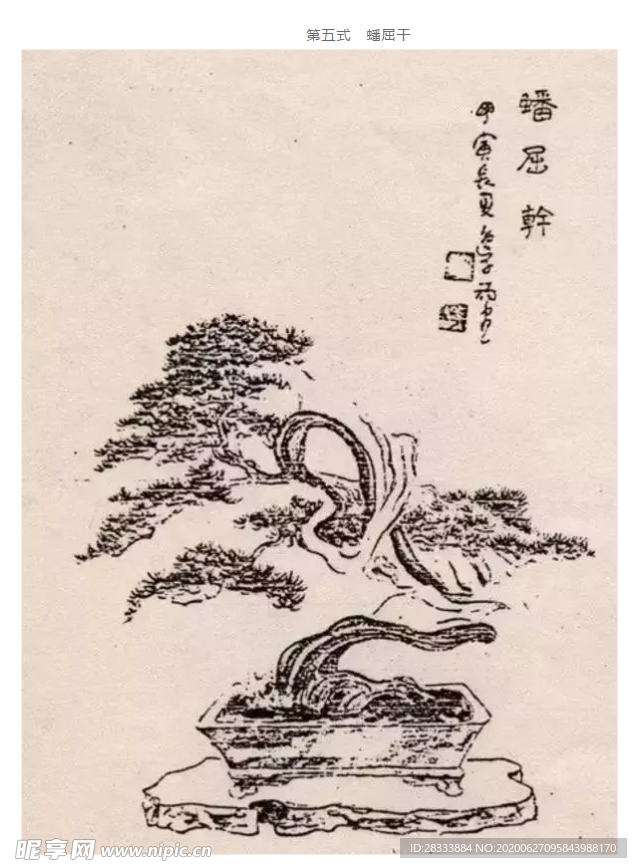 第五式　蟠屈干
蟠屈幹
甲寅長夏
昵享网 www.nipic.cn
ID:28333884 NO:20200627095843988170